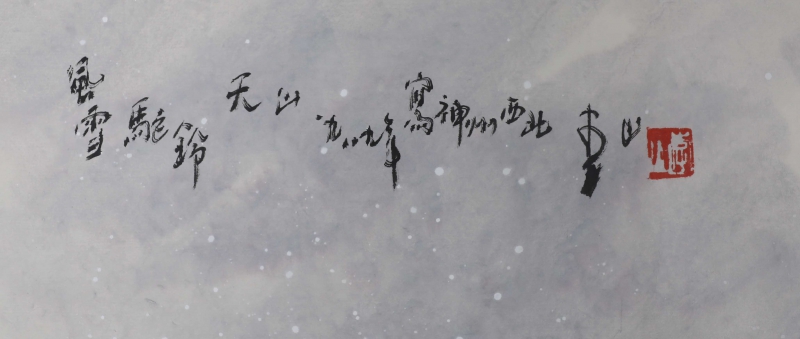 風雪駝鈴 天山 一九八九年 寫神州西北 山